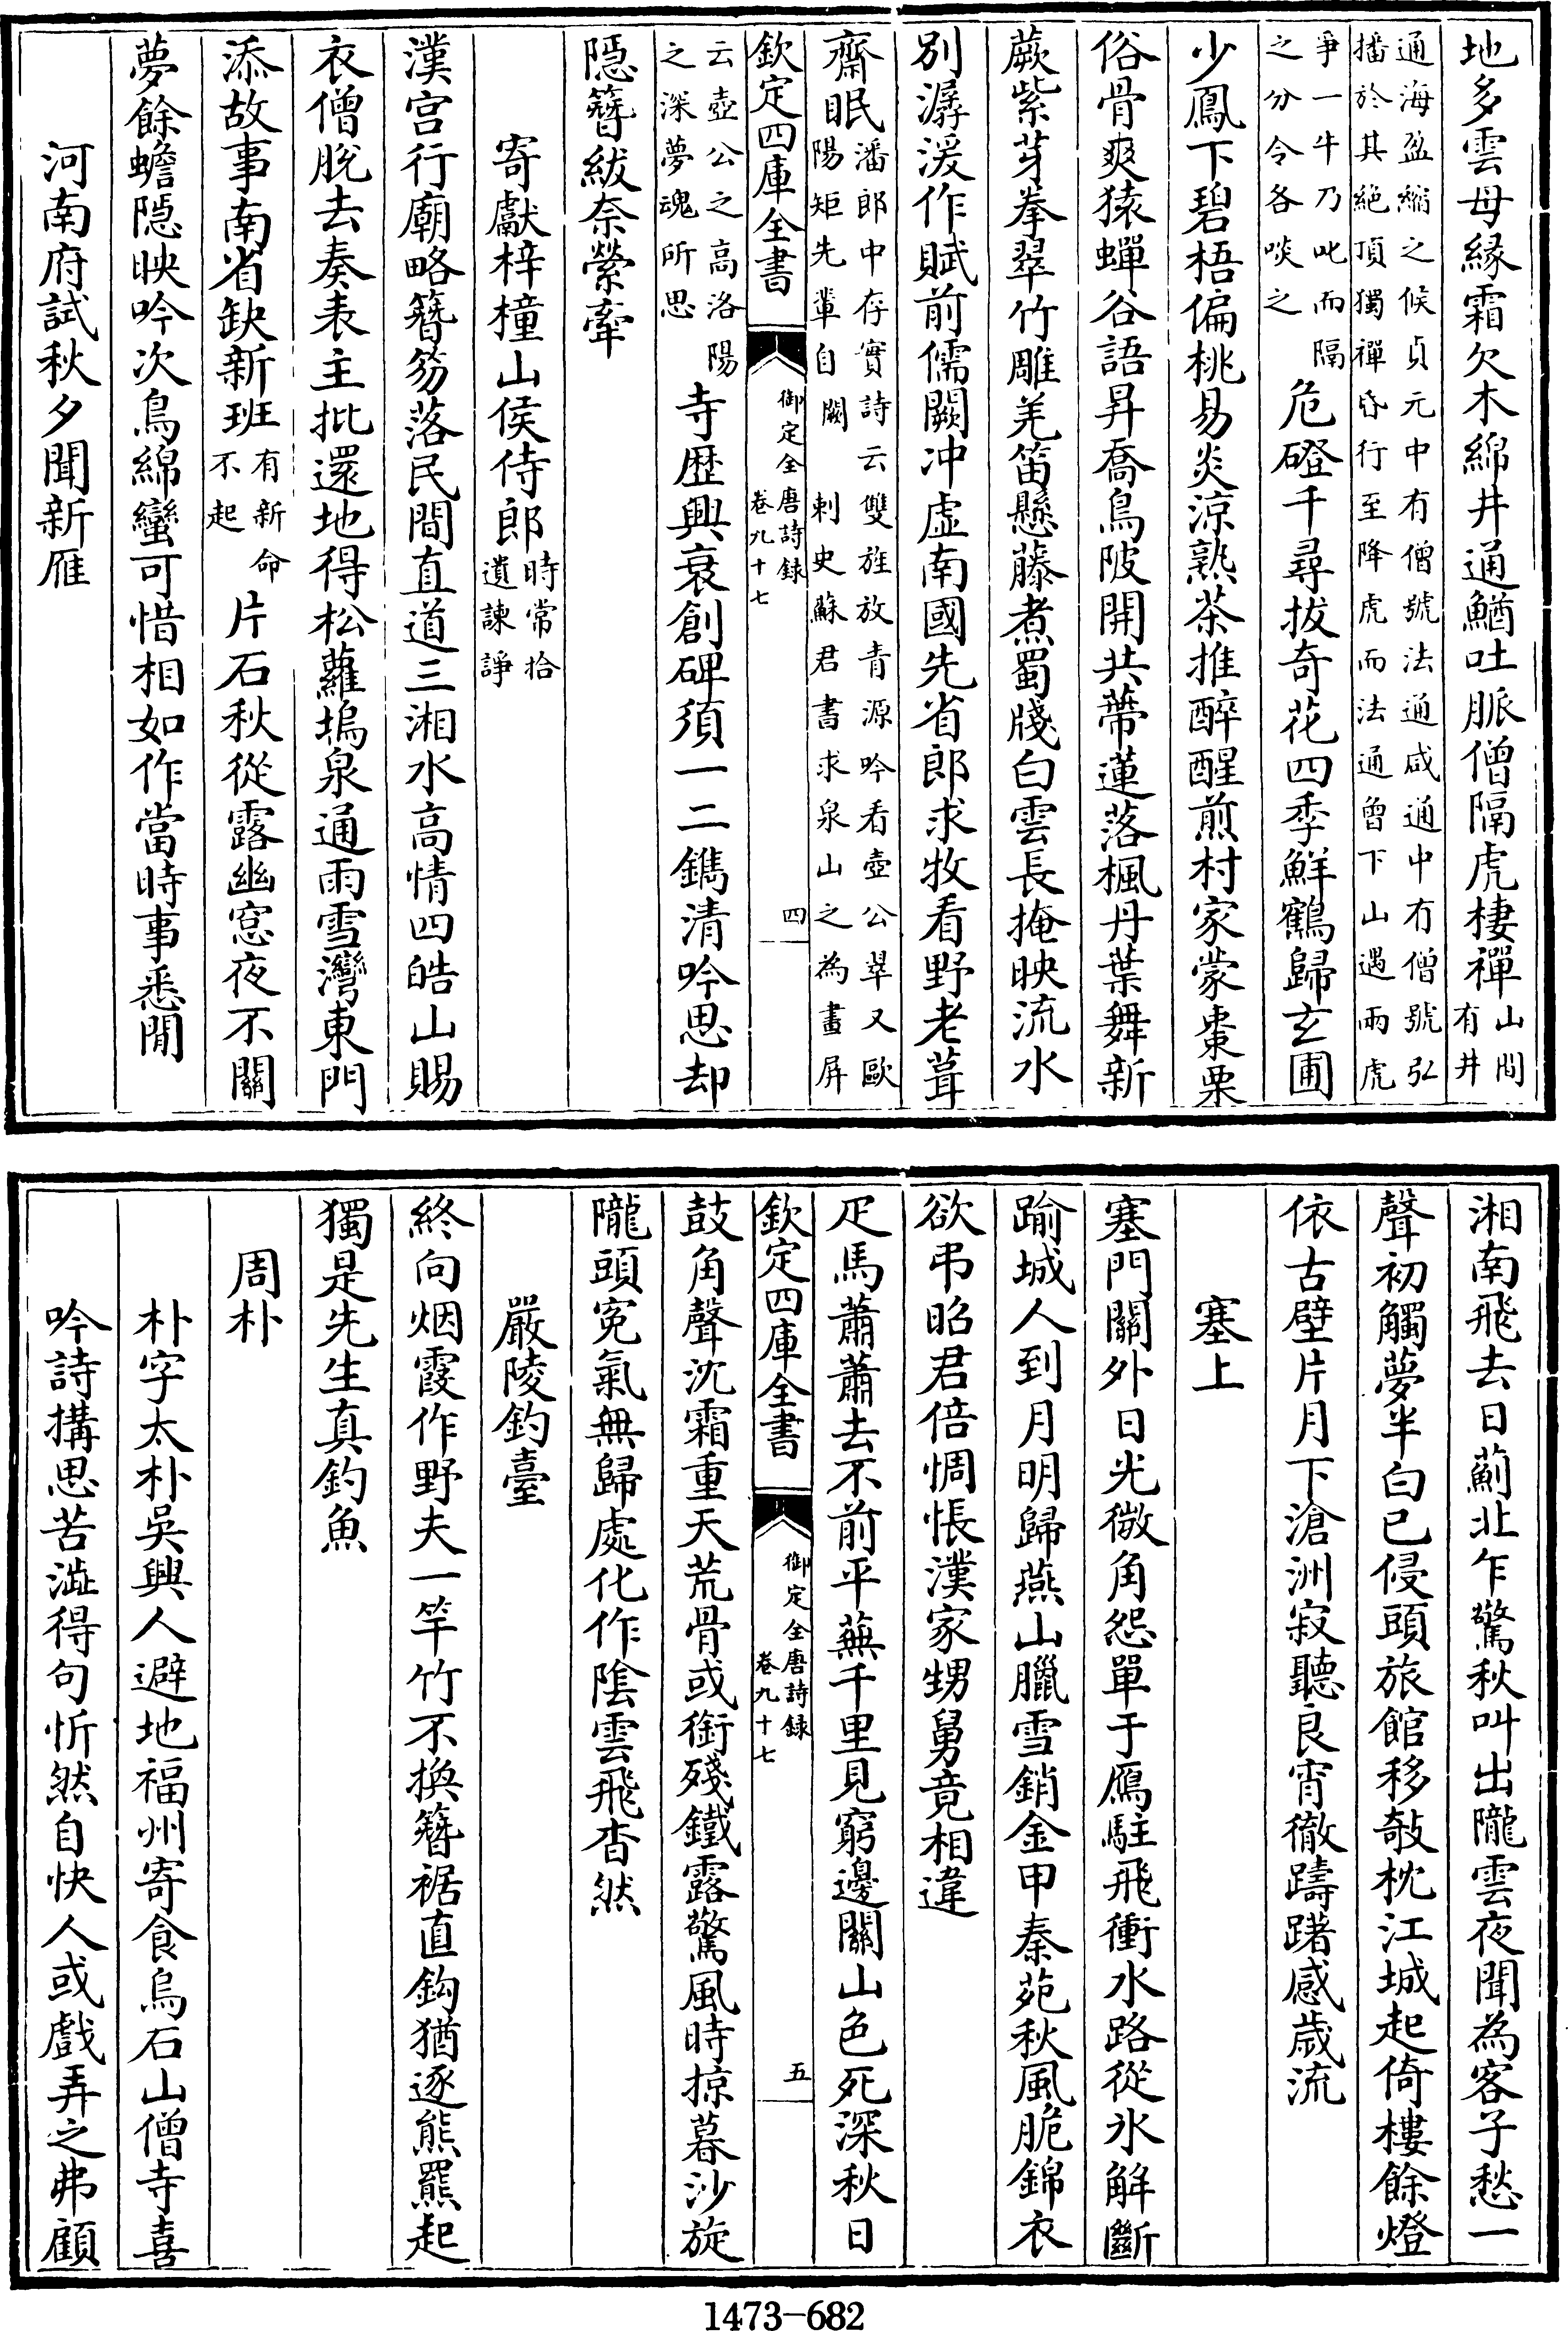 地多雲母緣霜欠木綿井通鰌吐脈僧隔虎棲禪山間有井
通海盈縮之候貞元中有僧號法通咸通中有僧號弘
播於其絕頂獨禪昏行至降虎而法通曾下山遇兩虎
爭一牛乃叱而隔之分令各啖之危磴千尋拔奇花四季鮮鶴歸玄圃
少鳳下碧梧偏桃易炎涼熟茶推醉醒煎村家蒙棗栗
俗骨爽猿蟬谷語昇喬鳥陂開共蔕蓮落楓丹葉舞新
蕨紫芽拳翠竹雕羌笛懸藤煮蜀牋白雲長掩映流水
別潺湲作賦前儒闕冲虛南國先省郎求牧看野老葺
齋眠潘郎中存實詩云雙旌放青源吟看壺公翠又歐陽矩先輩自闕 刺史蘇君書求泉山之為畫屏
欽定四庫全書 御定全唐詩錄 卷九十七 四
云壺公之高洛陽之深夢魂所思寺歷興衰創碑須一二鐫清吟思却
隱簪紱奈縈牽
寄獻梓橦山侯侍郎時常拾遺諫諍
漢宫行廟略簪笏落民間直道三湘水高情四皓山賜
衣僧脫去奏表主批還地得松蘿塢泉通雨雪灣東門
添故事南省缺新班有新命不起片石秋從露幽窓夜不關
夢餘蟾隱映吟次鳥綿蠻可惜相如作當時事悉閒
河南府試秋夕聞新雁
湘南飛去日薊北乍驚秋叫出隴雲夜聞為客子愁一
聲初觸夢半白已侵頭旅館移敧枕江城起倚樓餘燈
依古壁片月下滄洲寂聽良宵徹躊躇感歲流
塞上
塞門關外日光微角怨單于鴈駐飛衝水路從氷解斷
踰城人到月明歸燕山臘雪銷金甲秦苑秋風脆錦衣
欲弔昭君倍惆悵漢家甥舅竟相違
疋馬蕭蕭去不前平蕪千里見窮邊關山色死深秋日
欽定四庫全書 御定全唐詩錄 卷九十七 五
鼓角聲沈霜重天荒骨或銜殘鐵露驚風時掠暮沙旋
隴頭寃氣無歸處化作陰雲飛杳然
嚴陵釣臺
終向烟霞作野夫一竿竹不換簪裾直鈎猶逐熊羆起
獨是先生真釣魚
周朴
朴字太朴吳興人避地福州寄食烏石山僧寺喜
吟詩搆思苦澁得句忻然自快人或戲弄之弗顧
1473-682